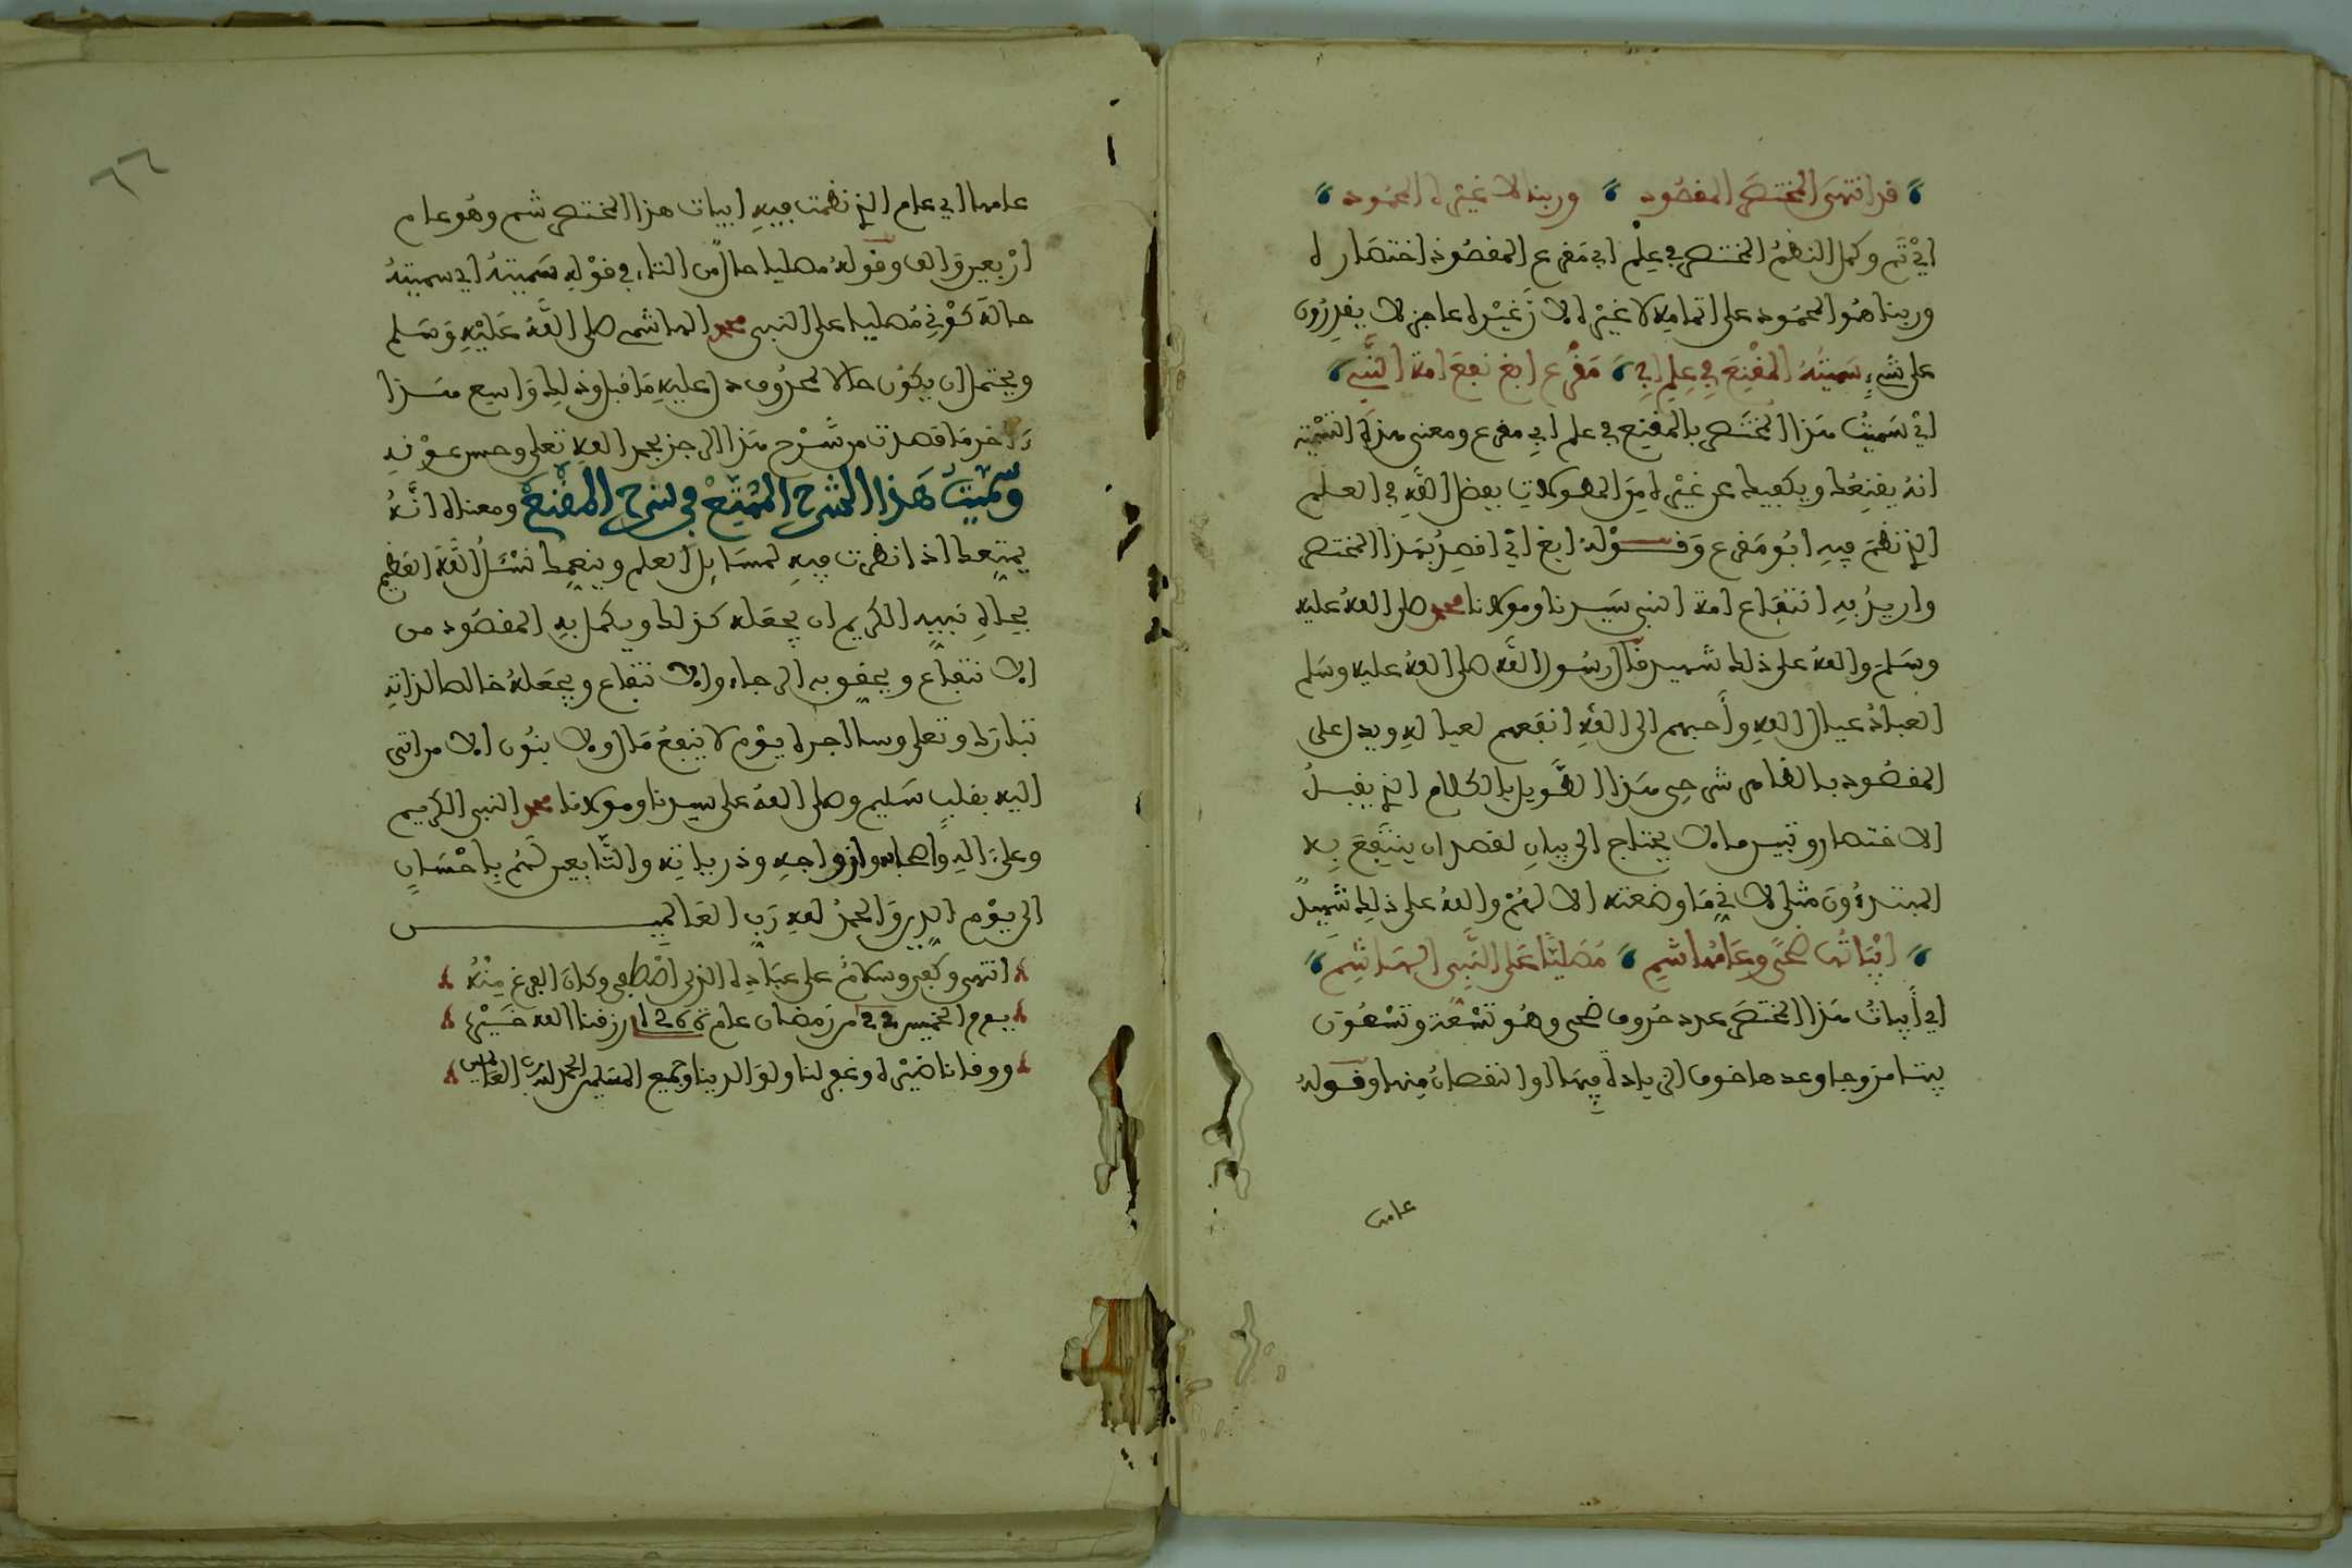 قد انتهى المختصر المقصود وربنا لا غيره المحمود
اي تم وكمل النظم المختصر في علم ابي مقرع المقصود اختصاره
وربنا هو المحمود على اتمامه لا غيره لان غيره عاجز لا يقدرون
على شيء سميته المقنع في علم ابي مقرع ابغ نفع امة النبي
اي سميت هذا المختصر بالمقنع في علم ابي مقرع ومعنى هذه التسمية
انه يقنعك ويكفيك عن غيره من المطولات بفضل الله في العلم
الذي نظم فيه ابو مقرع وقوله ابغ اي اقصد بهذا المختصر
واريد به انتفاع امة النبي سيدنا ومولانا محمد صلى الله عليه
وسلم والله على ذلك شهيد قال رسول الله صلى الله عليه وسلم
العباد عيال الله وأحبهم الى الله انفعهم لعياله ويدل على
المقصود بالنظم شرحي هذا الطويل بالكلام الذي يقبل
الاختصار وتبيين ما لا يحتاج الى بيان لقصد ان ينتفع به
المبتدءون مثلي لاني ما وضعته الا لهم والله على ذلك شهيد
ابياتها ضحى وعامها شم مصليا على النبي الهاشم
اي أبيات هذا المختصر عدد حروف ضحى وهو تسعة وتسعون
بيتا مزوجا وعدها خوف الزيادة فيها او النقصان منها وقوله
عامها
عامها اي عام الذي نظمت فيه ابيات هذا المختصر شم وهو عام
اربعين والف وقوله مصليا حال من التاء في قوله سميته اي سميته
حالة كوني مصليا على النبي محمد الهاشمي صلى الله عليه وسلم
ويحتمل ان يكون حالا لمحذوف دل عليه ما قبله وذلك واسع هذا
ءاخر ما قصدت من شرح هذا الرجز بحمد الله تعلى وحسن عونه
وسميت هذا الشرح الممتع في شرح المقنع ومعناه انه
يمتعك اذا نظرت فيه لمسايل العلم وينعمك نسئل الله العظيم
بجاه نبيه الكريم ان يجعله كذلك ويكمل به المقصود من
الانتفاع ويحقق به الرجاء والانتفاع ويجعله خالصا لذاته
تبارك وتعلى وسا اجره يوم لا ينفع مال ولا بنون الا من اتى
اليه بقلب سليم وصلى الله على سيدنا ومولانا محمد النبي الكريم
وعلى ءاله وأصحابه وازواجه وذرياته والتابعين لهم باحسان
الى يوم الدين والحمد لله رب العالمين
انتهى وكفى وسلام على عباده الذين اصطفى وكان الفرغ منه
يوم الخميس 22 من رمضان عام 1266 رزقنا الله خيره
ووقانا ضيره وغفر لنا ولوالدينا وجميع المسلمين الحمد لله رب العالمين
٦٦